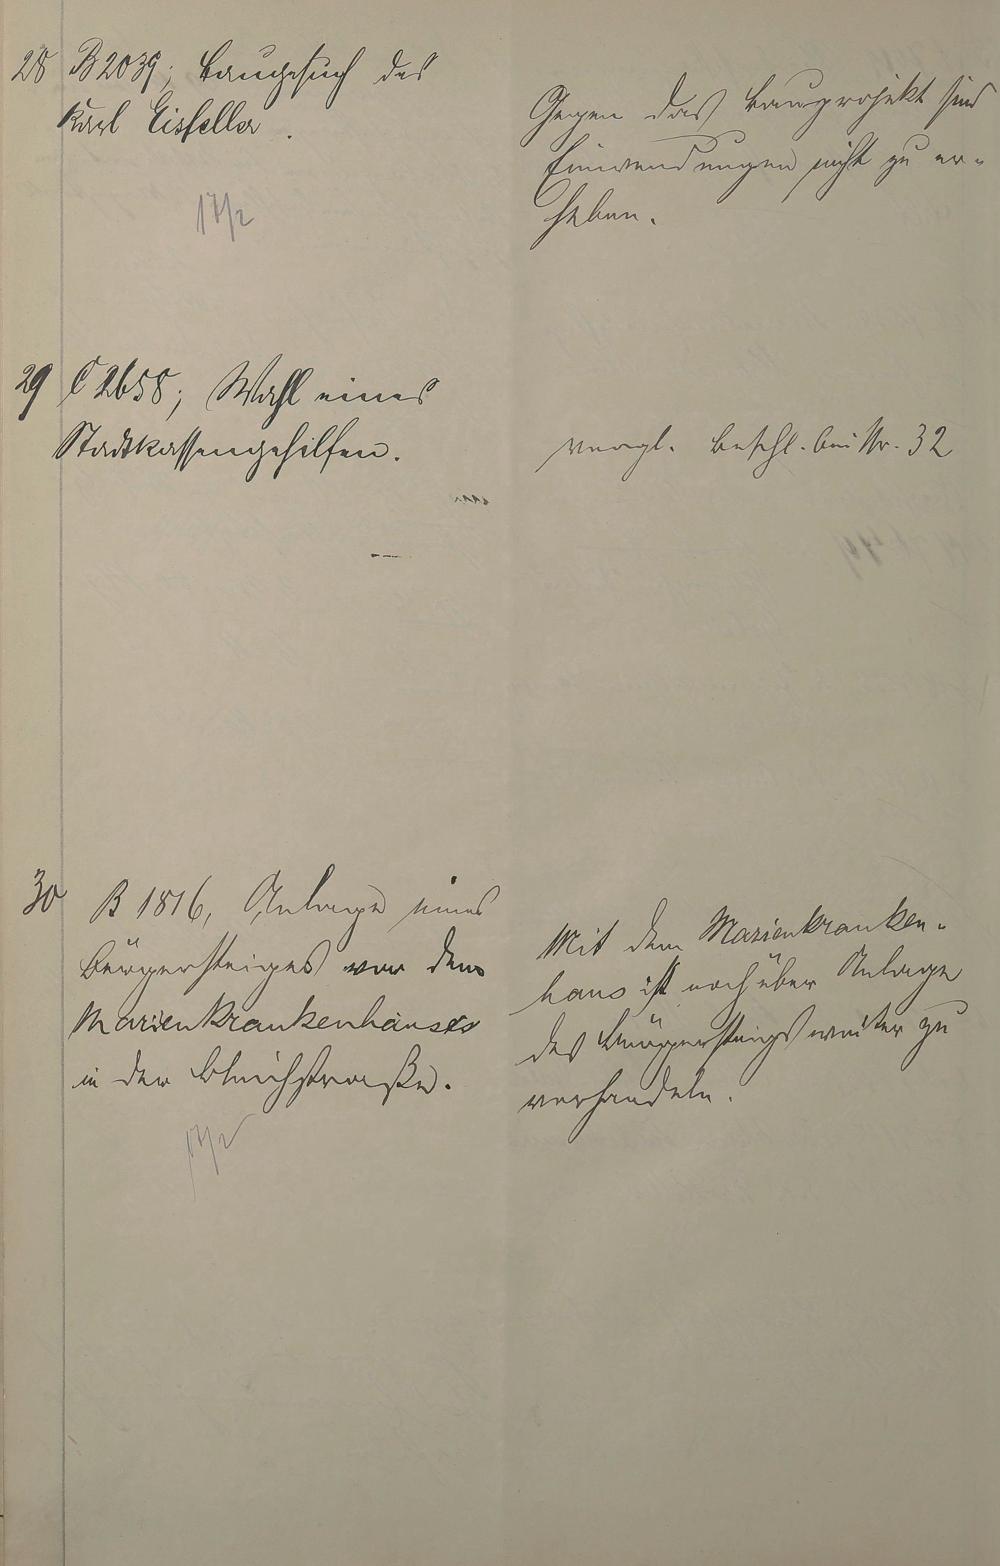 28 B 2039; Baugesuch des
Karl Eisfeller.
17/2
Gegen das Bauprojekt sind
Einwendungen nicht zu er-
heben.
29 C 2658; Wahl eines
Stadtkassengehilfen.
vergl. Beschl. bei Nr. 32
30 B 1816, Anlage eines
Bürgersteiges vor dem
Marienkrankenhauses
in der Bleichstraße.
17/2
Mit dem Marienkranken-
haus ist noch über Anlage
des Bürgersteigs weiter zu
verhandeln.